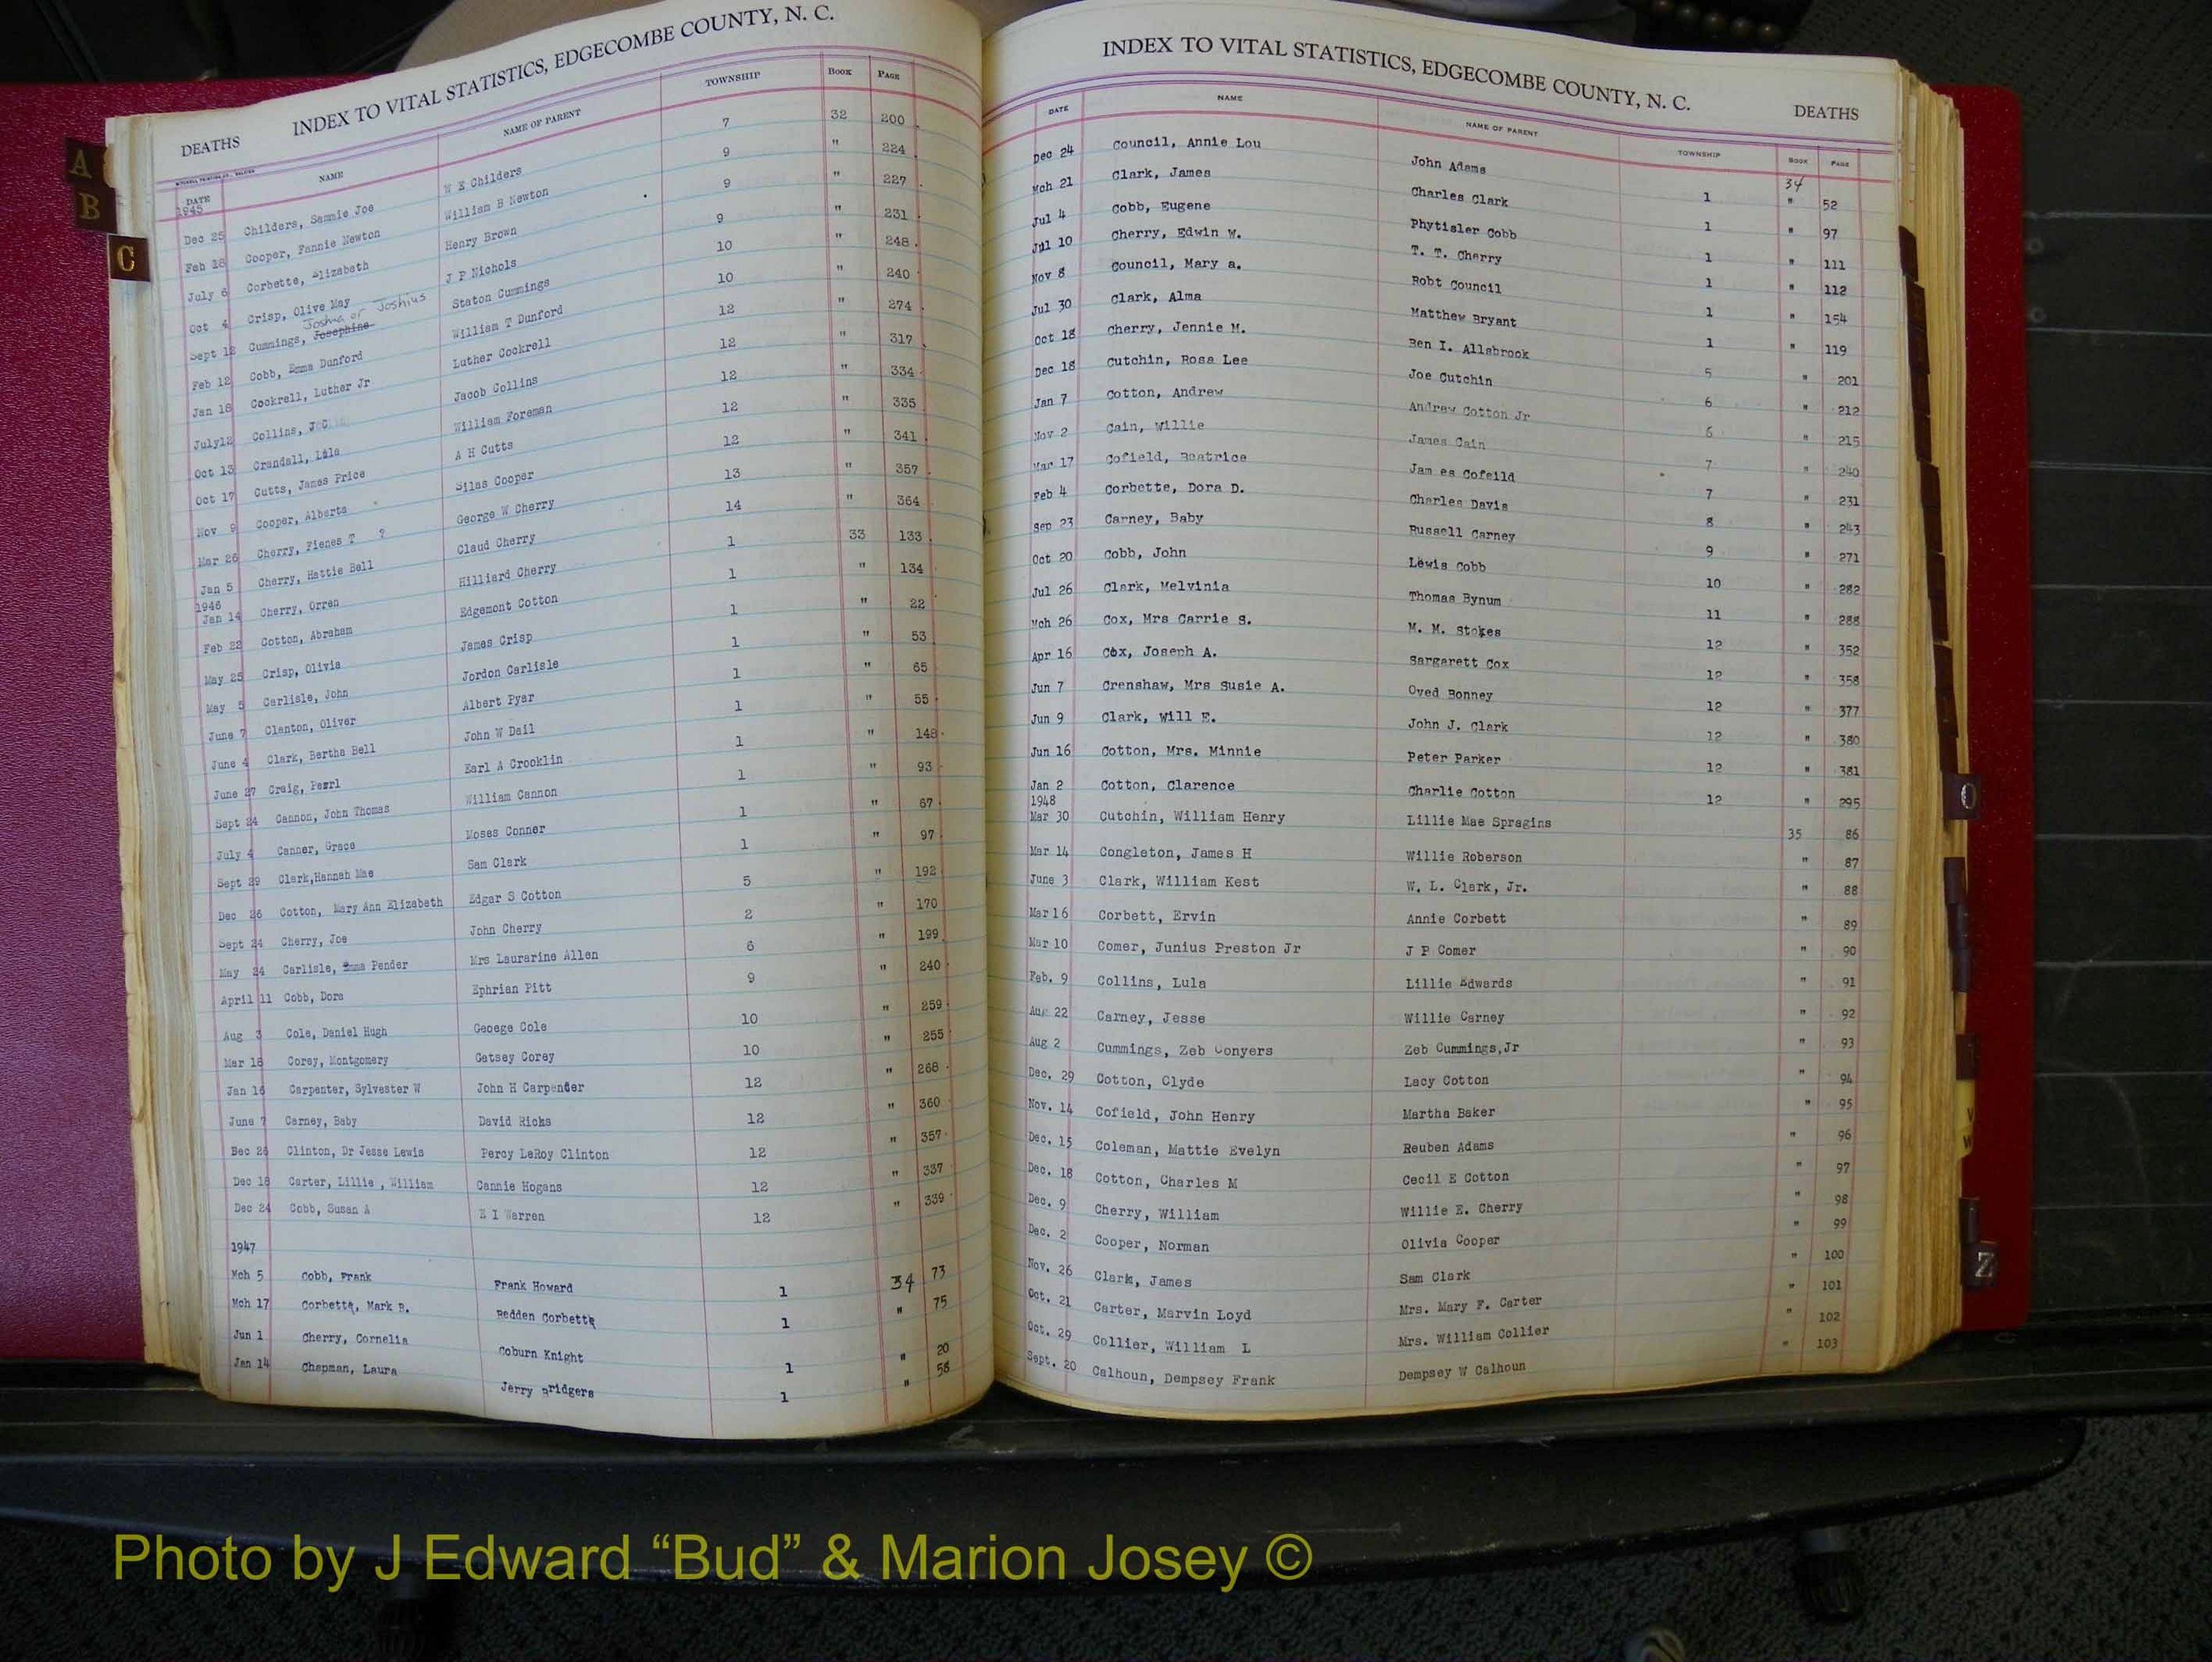 INDEX TO VITAL STATISTICS, EDGECOMBE COUNTY, N. C.
DEATHS
DATE NAME NAME OF PARENT TOWNSHIP BOOK PAGE
1945
Dec 25 Childers, Sammie Joe W E Childers 7 32 200
Feb 18 Cooper, Fannie Newton William B Newton 9 " 224
July 6 Corbette, Elizabeth Henry Brown 9 " 227
Oct 4 Crisp, Olive May J P Nichols 9 " 231
Joshua or Joshius
Sept 12 Cummings, Josephine Staton Cummings 10 " 248
Feb 12 Cobb, Emma Dunford William T Dunford 10 " 240
Jan 18 Cockrell, Luther Jr Luther Cockrell 12 " 274
July12 Collins, J C Jacob Collins 12 " 317
Oct 13 Crandall, Lila William Foreman 12 " 334
Oct 17 Cutts, James Price A H Cutts 12 " 335
Nov 9 Cooper, Alberta Silas Cooper 12 " 341
Mar 26 Cherry, Fienes T ? George W Cherry 13 " 357
Jan 5 Cherry, Hattie Bell Claud Cherry 14 " 364
1946
Jan 14 Cherry, Orren Hilliard Cherry 1 33 133
Feb 22 Cotton, Abraham Edgemont Cotton 1 " 134
May 25 Crisp, Olivia James Crisp 1 " 22
May 5 Carlisle, John Jordon Carlisle 1 " 53
June 7 Clanton, Oliver Albert Pyar 1 " 65
June 4 Clark, Bertha Bell John W Dail 1 " 55
June 27 Craig, Pearl Earl A Crooklin 1 " 148
Sept 24 Cannon, John Thomas William Cannon 1 " 93
July 4 Conner, Grace Moses Conner 1 " 67
Sept 29 Clark,Hannah Mae Sam Clark 1 " 97
Dec 26 Cotton, Mary Ann Elizabeth Edgar S Cotton 5 " 192
Sept 24 Cherry, Joe John Cherry 2 " 170
May 24 Carlisle, Emma Pender Mrs Laurarine Allen 6 " 199
April 11 Cobb, Dora Ephrian Pitt 9 " 240
Aug 3 Cole, Daniel Hugh Geoege Cole 10 " 259
Mar 18 Corey, Montgomery Gatsey Corey 10 " 255
Jan 16 Carpenter, Sylvester W John H Carpender 12 " 268
June 7 Carney, Baby David Ricks 12 " 360
Dec 26 Clinton, Dr Jesse Lewis Percy LeRoy Clinton 12 " 357
Dec 18 Carter, Lillie , William Cannie Hogans 12 " 337
Dec 24 Cobb, Susan A E I Warren 12 " 339
1947
Mch 5 Cobb, Frank Frank Howard 1 34 73
Mch 17 Corbette, Mark B. Redden Corbette 1 " 75
Jun 1 Cherry, Cornelia Coburn Knight 1 " 20
Jan 14 Chapman, Laura Jerry Bridgers 1 " 58
INDEX TO VITAL STATISTICS, EDGECOMBE COUNTY, N. C.
DEATHS
DATE NAME NAME OF PARENT TOWNSHIP BOOK PAGE
Dec 24 Council, Annie Lou John Adams 1 34 52
Mch 21 Clark, James Charles Clark 1 " 97
Jul 4 Cobb, Eugene Phytisler Cobb 1 " 111
Jul 10 Cherry, Edwin W. T. T. Cherry 1 " 112
Nov 8 Council, Mary a. Robt Council 1 " 154
Jul 30 Clark, Alma Matthew Bryant 1 " 119
Oct 18 Cherry, Jennie M. Ben I. Allsbrook 5 " 201
Dec 18 Cutchin, Rosa Lee Joe Cutchin 6 " 212
Jan 7 Cotton, Andrew Andrew Cotton Jr 6 " 215
Nov 2 Cain, Willie James Cain 7 " 240
Mar 17 Cofield, Beatrice Jam es Cofeild 7 " 231
Feb 4 Corbette, Dora D. Charles Davis 8 " 243
Sep 23 Carney, Baby Russell Carney 9 " 271
Oct 20 Cobb, John Lewis Cobb 10 " 282
Jul 26 Clark, Melvinia Thomas Bynum 11 " 288
Mch 26 Cox, Mrs Carrie S. M. M. Stokes 12 " 352
Apr 16 Cox, Joseph A. Sargarett Cox 12 " 358
Jun 7 Crenshaw, Mrs Susie A. Oved Bonney 12 " 377
Jun 9 Clark, Will E. John J. Clark 12 " 380
Jun 16 Cotton, Mrs. Minnie Peter Parker 12 " 381
Jan 2 Cotton, Clarence Charlie Cotton 12 " 295
1948
Mar 30 Cutchin, William Henry Lillie Mae Spragins 35 86
Mar 14 Congleton, James H Willie Roberson " 87
June 3 Clark, William Kest W. L. Clark, Jr. " 88
Mar 16 Corbett, Ervin Annie Corbett " 89
Mar 10 Comer, Junius Preston Jr J P Comer " 90
Feb. 9 Collins, Lula Lillie Edwards " 91
Aug 22 Carney, Jesse Willie Carney " 92
Aug 2 Cummings, Zeb Conyers Zeb Cummings,Jr " 93
Dec. 29 Cotton, Clyde Lacy Cotton " 94
Nov. 14 Cofield, John Henry Martha Baker " 95
Dec. 15 Coleman, Mattie Evelyn Reuben Adams " 96
Dec. 18 Cotton, Charles M Cecil E Cotton " 97
Dec. 9 Cherry, William Willie E. Cherry " 98
Dec. 2 Cooper, Norman Olivia Cooper " 99
Nov. 26 Clark, James Sam Clark " 100
Oct. 21 Carter, Marvin Loyd Mrs. Mary F. Carter " 101
Oct. 29 Collier, William L Mrs. William Collier " 102
Sept. 20 Calhoun, Dempsey Frank Dempsey W Calhoun " 103
A
B
C
O
V
W
Z
Photo by J Edward “Bud” & Marion Josey ©